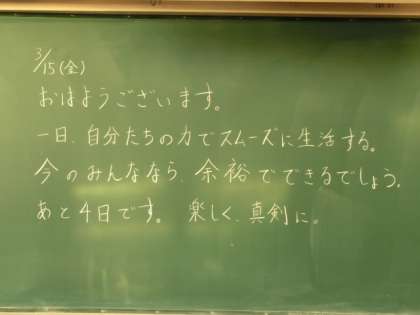 3/15(金)
おはようございます。
一日、自分たちの力でスムーズに生活する。
今のみんななら、余裕でできるでしょう。
あと4日です。 楽しく、真剣に。